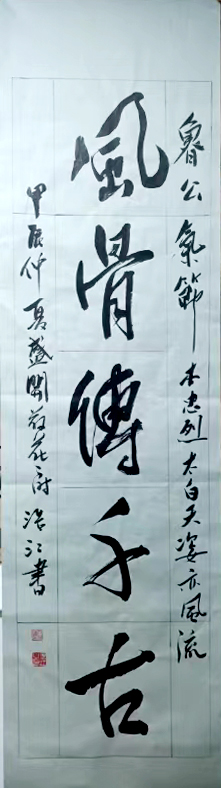 魯公氣節本忠烈太白天姿亦風流
風骨傳千古
甲辰仲夏盛開花浩江書